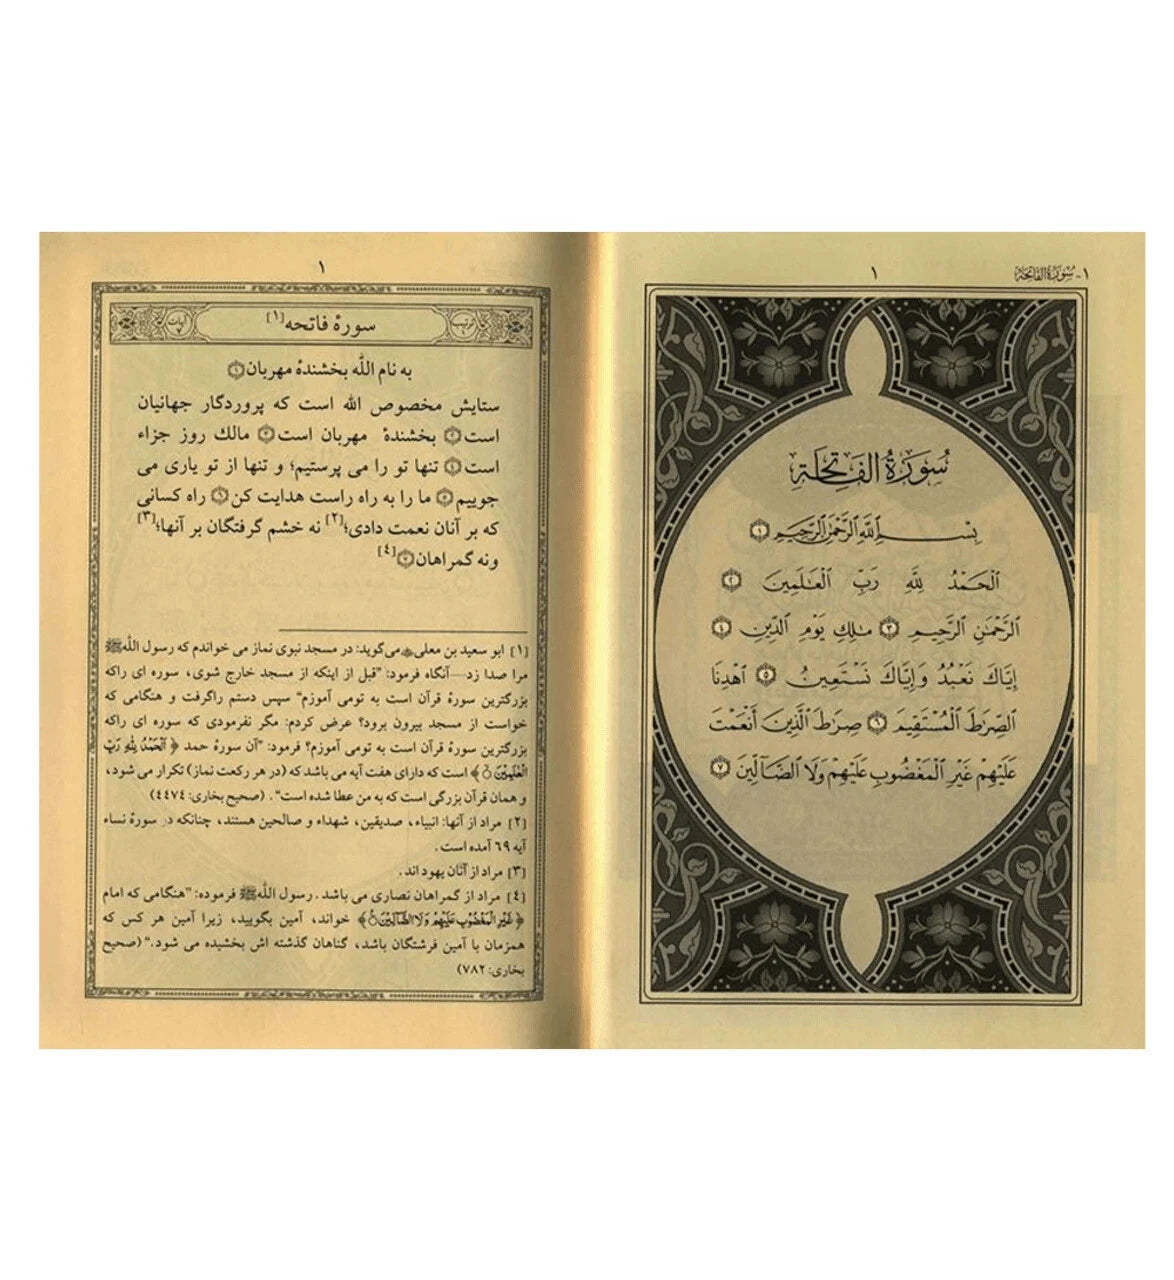 ١- سُورَةُ الفَاتِحَةِ
١
سُورَةُ الفَاتِحَةِ
بِسْمِ ٱللَّهِ ٱلرَّحْمَٰنِ ٱلرَّحِيمِ ١
ٱلْحَمْدُ لِلَّهِ رَبِّ ٱلْعَٰلَمِينَ ٢
ٱلرَّحْمَٰنِ ٱلرَّحِيمِ ٣ مَٰلِكِ يَوْمِ ٱلدِّينِ ٤
إِيَّاكَ نَعْبُدُ وَإِيَّاكَ نَسْتَعِينُ ٥ ٱهْدِنَا
ٱلصِّرَٰطَ ٱلْمُسْتَقِيمَ ٦ صِرَٰطَ ٱلَّذِينَ أَنْعَمْتَ
عَلَيْهِمْ غَيْرِ ٱلْمَغْضُوبِ عَلَيْهِمْ وَلَا ٱلضَّآلِّينَ ٧
١
ترتیب ١ سورهٔ فاتحه[١] آیات ٧
به نام الله بخشندهٔ مهربان١
ستایش مخصوص الله است که پروردگار جهانیان
است٢ بخشندهٔ مهربان است٣ مالك روز جزاء
است٤ تنها تو را می پرستیم؛ و تنها از تو یاری می
جوییم٥ ما را به راه راست هدایت کن٦ راه کسانی
که بر آنان نعمت دادی؛[٢] نه خشم گرفتگان بر آنها؛[٣]
ونه گمراهان٧[٤]
[١] ابو سعید بن معلی می‌گوید: در مسجد نبوی نماز می خواندم که رسول اللهﷺ
مرا صدا زد—آنگاه فرمود: "قبل از اینکه از مسجد خارج شوی، سوره ای راکه
بزرگترین سورهٔ قرآن است به تومی آموزم" سپس دستم راگرفت و هنگامی که
خواست از مسجد بیرون برود؟ عرض کردم: مگر نفرمودی که سوره ای راکه
بزرگترین سورهٔ قرآن است به تومی آموزم؟ فرمود: "آن سورهٔ حمد ﴿ ٱلْحَمْدُ لِلَّهِ رَبِّ
ٱلْعَٰلَمِينَ ﴾ است که دارای هفت آیه می باشد که (در هر رکعت نماز) تکرار می شود،
و همان قرآن بزرگی است که به من عطا شده است". (صحیح بخاری: ٤٤٧٤)
[٢] مراد از آنها: انبیاء، صدیقین، شهداء و صالحین هستند، چنانکه در سورهٔ نساء
آیه ٦٩ آمده است.
[٣] مراد از آنان یهود اند.
[٤] مراد از گمراهان نصاری می باشد. رسول اللهﷺ فرموده: "هنگامی که امام
﴿ غَيْرِ ٱلْمَغْضُوبِ عَلَيْهِمْ وَلَا ٱلضَّآلِّينَ ﴾ خواند، آمین بگویید، زیرا آمین هر کس که
همزمان با آمین فرشتگان باشد، گناهان گذشته اش بخشیده می شود." (صحیح
بخاری: ٧٨٢)